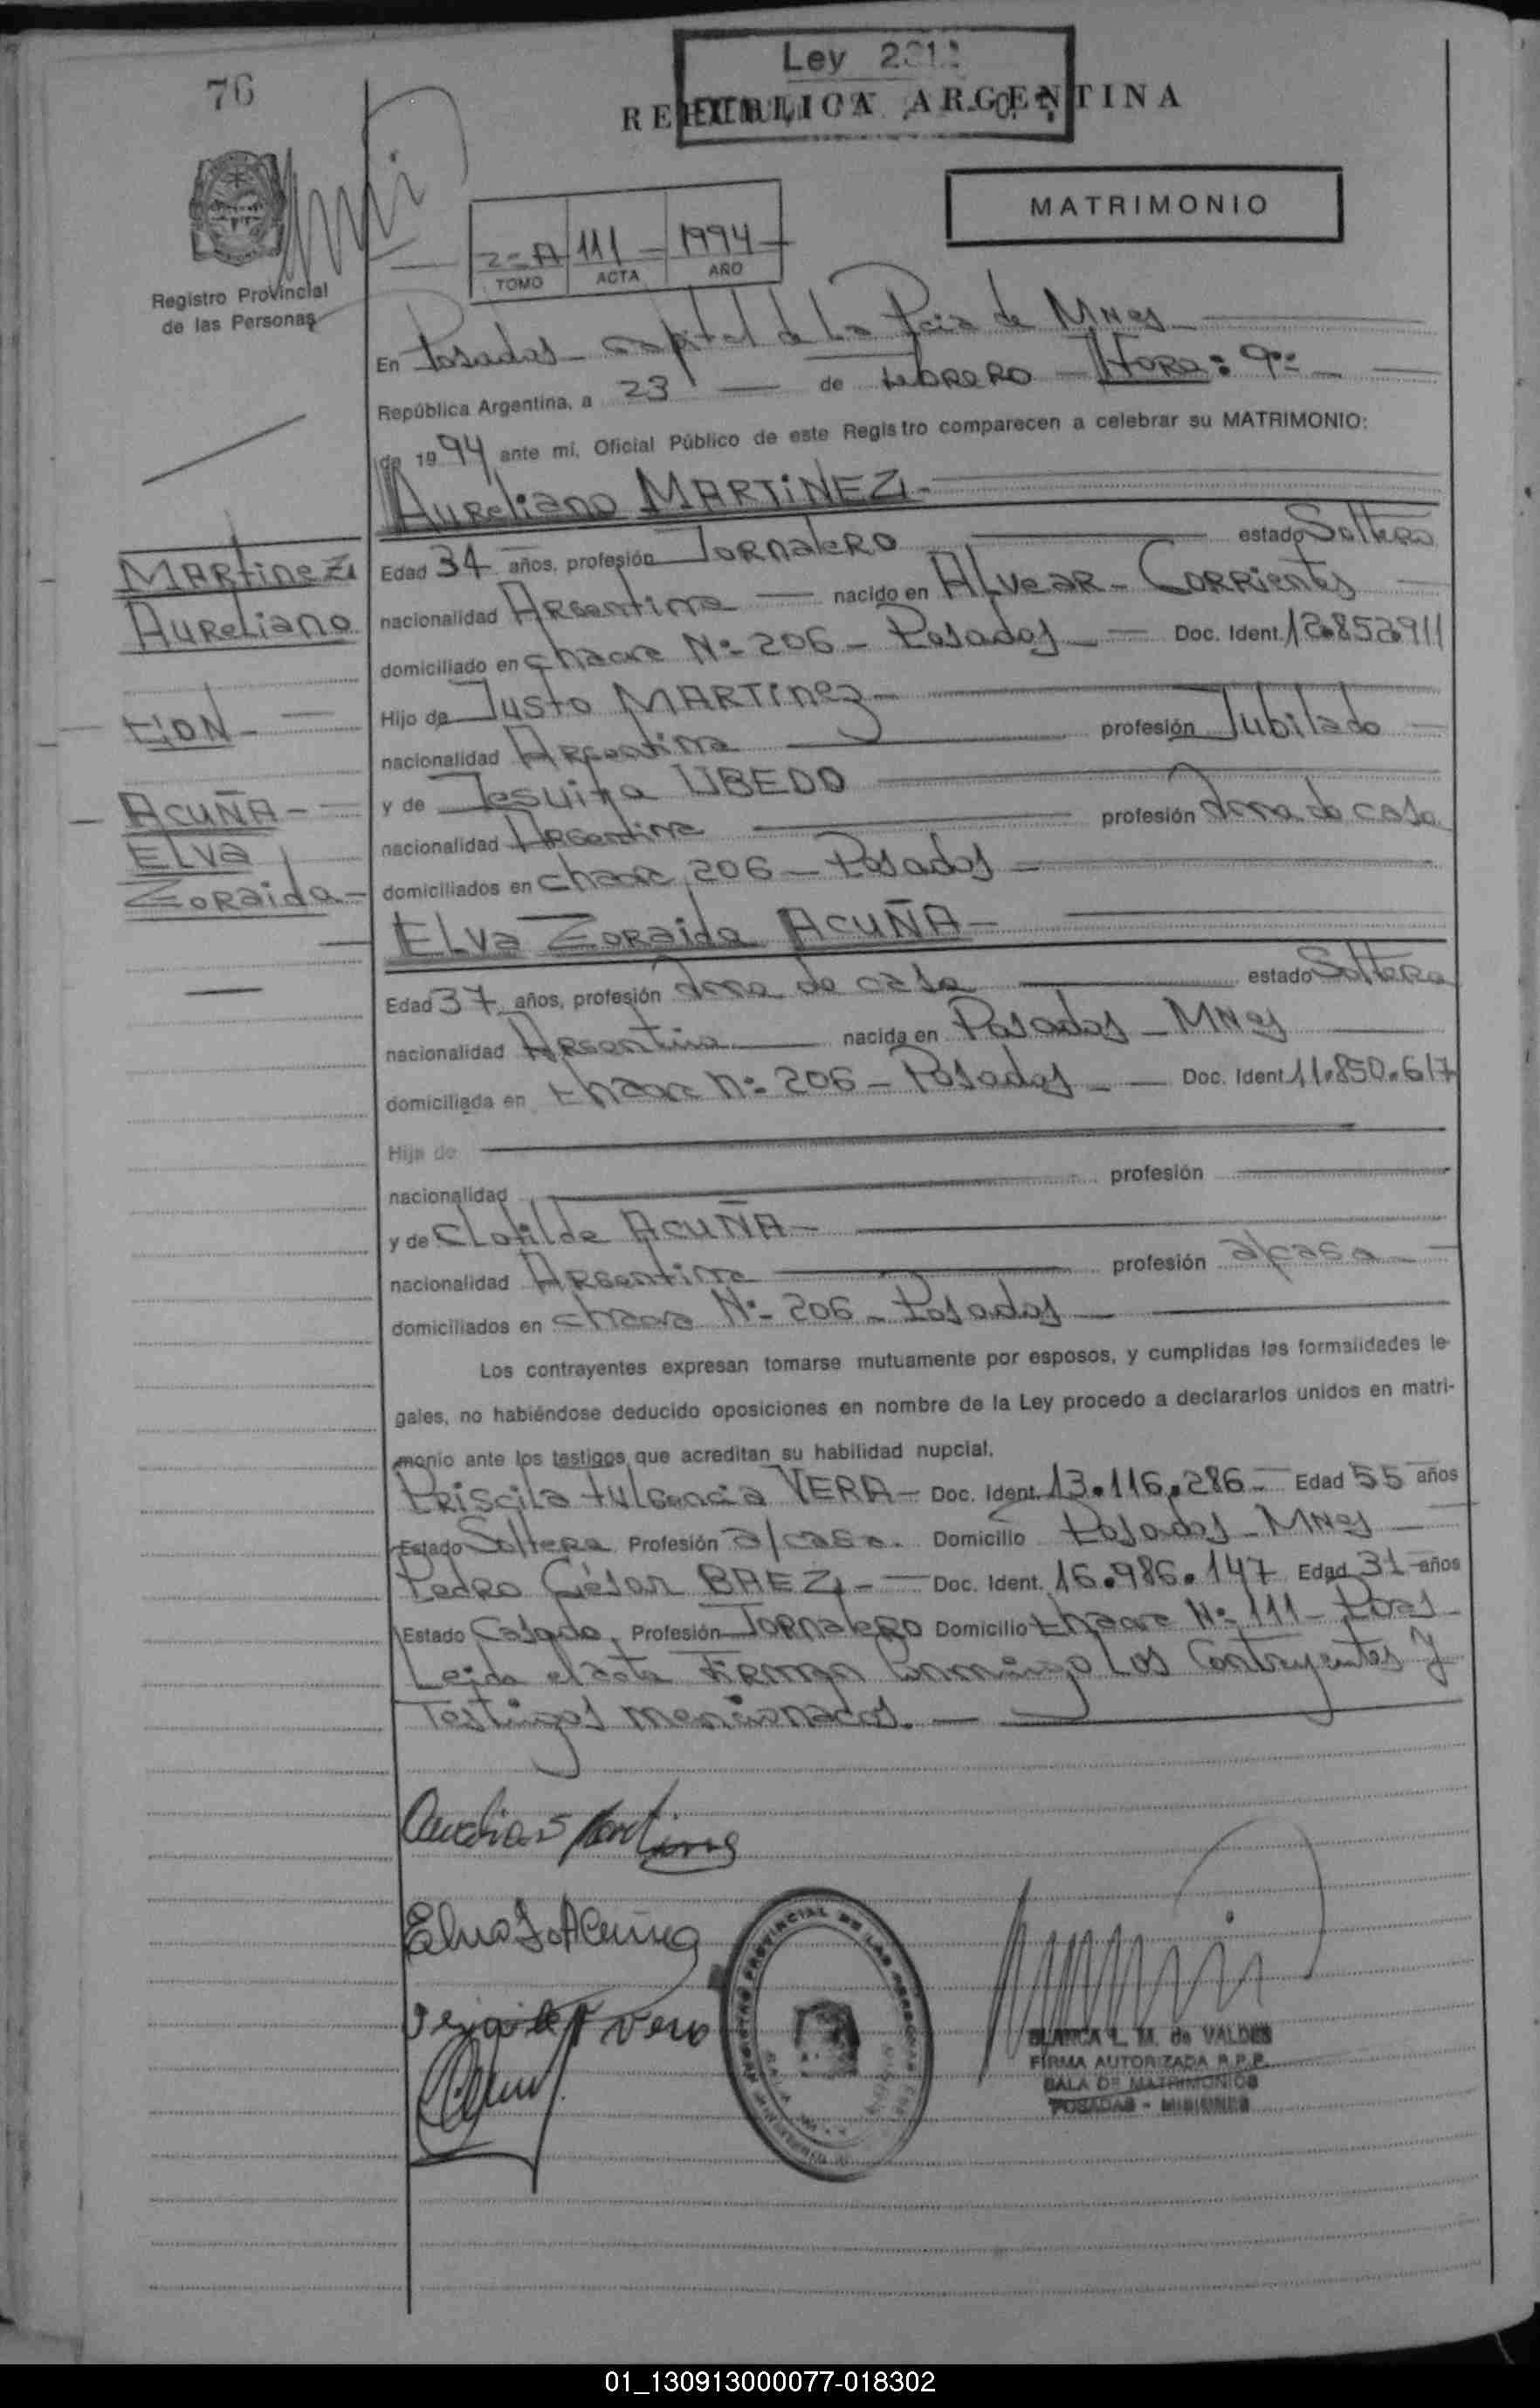 76
Ley
REPUBLICA ARGENTINA
MATRIMONIO
2=A 111 - 1994-
TOMO ACTA AÑO
Registro Provincial
de las Personas
En Posadas - Capital de La Pcia de Mnes
República Argentina, a 23 — de Febrero - Hora: 9=
de 1994 ante mí, Oficial Público de este Registro comparecen a celebrar su MATRIMONIO:
Aureliano MARTINEZ -
Edad 34 años, profesión Jornalero estado Soltero
nacionalidad Argentina — nacido en Alvear - Corrientes
domiciliado en chacra Nº 206 - Posadas - Doc. Ident. 12.852.911
Hijo de Justo MARTINEZ -
nacionalidad Argentina profesión Jubilado
y de Jesuita UBEDO
nacionalidad Argentina profesión Ama de casa
domiciliados en chacra 206 - Posadas -
Martinez
Aureliano
CION -
ACUÑA -
Elva
Zoraida -
Elva Zoraida ACUÑA -
Edad 37 años, profesión Ama de casa estado Soltera
nacionalidad Argentina nacida en Posadas - Mnes
domiciliada en chacra nº 206 - Posadas - Doc. Ident. 11.850.617
Hija de
nacionalidad profesión
y de Clotilde ACUÑA -
nacionalidad Argentina profesión a/casa
domiciliados en chacra Nº 206 - Posadas
Los contrayentes expresan tomarse mutuamente por esposos, y cumplidas las formalidades le-
gales, no habiéndose deducido oposiciones en nombre de la Ley procedo a declararlos unidos en matri-
monio ante los testigos que acreditan su habilidad nupcial.
Priscila Fulgencia VERA - Doc. Ident. 13.116.286 - Edad 55 años
Estado Soltera Profesión a/casa. Domicilio Posadas - Mnes
Pedro César BAEZ - Doc. Ident. 16.986.147 Edad 31 años
Estado Casado, Profesión Jornalero Domicilio chacra Nº 111 - Pdas
Leida el acta Firman Conmigo Los Contrayentes y
Testigos mencionados. -
Elva Z. Acuña
BLANCA L. M. de VALDES
FIRMA AUTORIZADA R.P.P.
SALA DE MATRIMONIOS
POSADAS - MISIONES
REGISTRO PROVINCIAL DE LAS PERSONAS
01_130913000077-018302